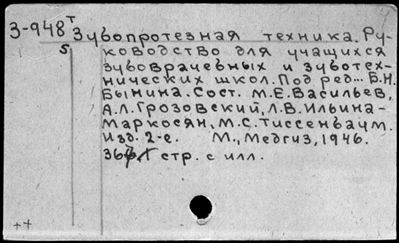 З-948т Зубопротезная техника. Ру-
5 ководство для учащихся
зубоврачебных и зуботех-
нических школ. Под ред... Б.Н.
Бынина. Сост. М.Е. Васильев,
А.Л. Грозовский, Л.В. Ильина-
Маркосян, М.С. Тиссенбаум.
Изд. 2-е. М., Медгиз, 1946.
стр. с илл.
++